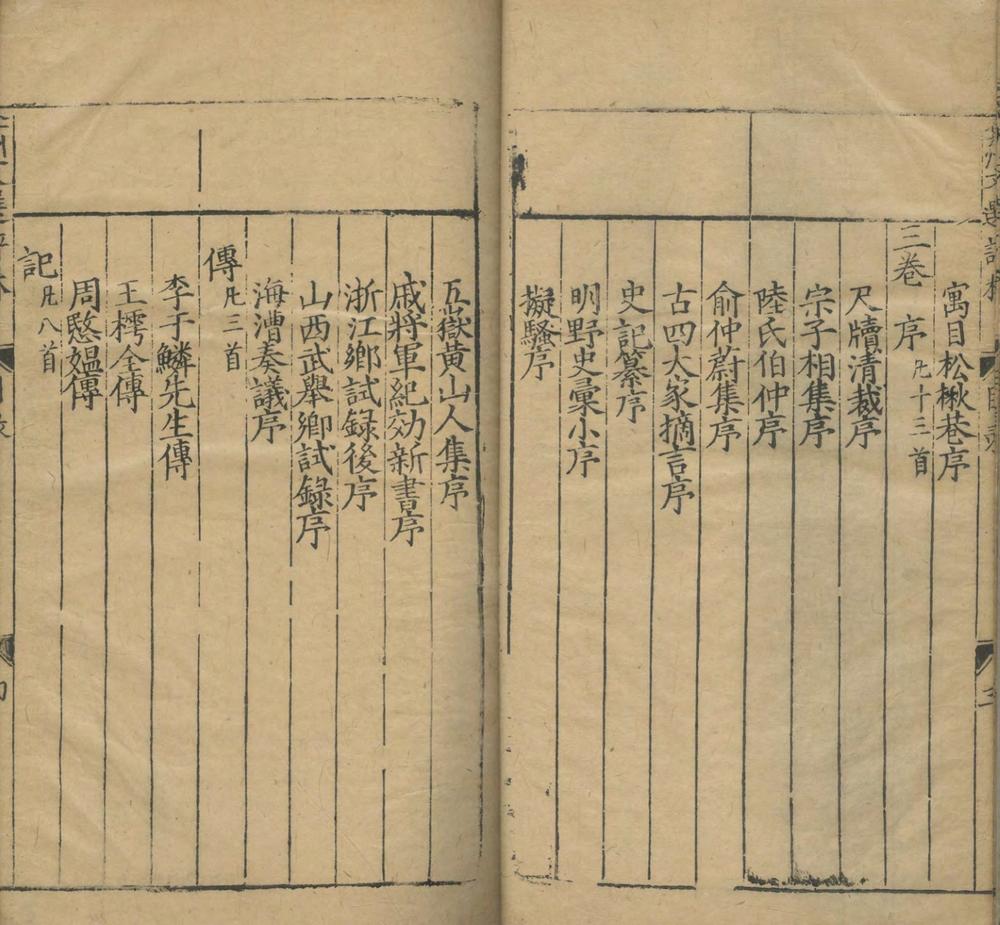 寓目松楸巷序
三卷
序 凡十三首
尺牘清裁序
宗子相集序
陸氏伯仲序
俞仲蔚集序
古四大家摘言序
史記纂序
明野史彙小序
擬騷序
五嶽黃山人集序
戚將軍紀効新書序
浙江鄉試録後序
山西武舉鄉試錄序
海漕奏議序
傳 凡三首
李于鱗先生傳
王樗全傳
周愍媼傳
記 凡八首